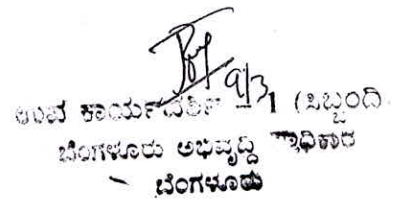 9/3
ಉಪ ಕಾರ್ಯದರ್ಶಿ - 1 (ಸಿಬ್ಬಂದಿ
ಬೆಂಗಳೂರು ಅಭಿವೃದ್ಧಿ ಪ್ರಾಧಿಕಾರ
ಬೆಂಗಳೂರು